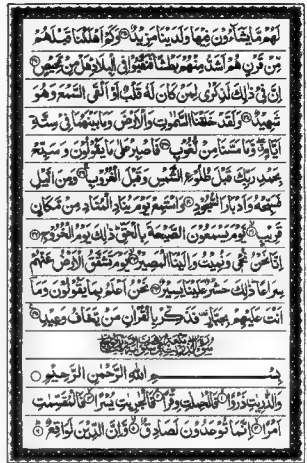 لَهُمْ مَّا يَشَآءُوْنَ فِيْهَا وَلَدَيْنَا مَزِيْدٌ ۝ وَكَمْ اَهْلَكْنَا قَبْلَهُمْ
مِّنْ قَرْنٍ هُمْ اَشَدُّ مِنْهُمْ بَطْشًا فَنَقَّبُوْا فِي الْبِلَادِ هَلْ مِنْ مَّحِيْصٍ ۝
اِنَّ فِيْ ذٰلِكَ لَذِكْرٰى لِمَنْ كَانَ لَهٗ قَلْبٌ اَوْ اَلْقَى السَّمْعَ وَهُوَ
شَهِيْدٌ ۝ وَلَقَدْ خَلَقْنَا السَّمٰوٰتِ وَالْاَرْضَ وَمَا بَيْنَهُمَا فِيْ سِتَّةِ
اَيَّامٍ ۖ وَّمَا مَسَّنَا مِنْ لُّغُوْبٍ ۝ فَاصْبِرْ عَلٰى مَا يَقُوْلُوْنَ وَسَبِّحْ
بِحَمْدِ رَبِّكَ قَبْلَ طُلُوْعِ الشَّمْسِ وَقَبْلَ الْغُرُوْبِ ۝ وَمِنَ الَّيْلِ
فَسَبِّحْهُ وَاَدْبَارَ السُّجُوْدِ ۝ وَاسْتَمِعْ يَوْمَ يُنَادِ الْمُنَادِ مِنْ مَّكَانٍ
قَرِيْبٍ ۝ يَّوْمَ يَسْمَعُوْنَ الصَّيْحَةَ بِالْحَقِّ ذٰلِكَ يَوْمُ الْخُرُوْجِ ۝
اِنَّا نَحْنُ نُحْيٖ وَنُمِيْتُ وَاِلَيْنَا الْمَصِيْرُ ۝ يَوْمَ تَشَقَّقُ الْاَرْضُ عَنْهُمْ
سِرَاعًا ذٰلِكَ حَشْرٌ عَلَيْنَا يَسِيْرٌ ۝ نَحْنُ اَعْلَمُ بِمَا يَقُوْلُوْنَ وَمَآ
اَنْتَ عَلَيْهِمْ بِجَبَّارٍ فَذَكِّرْ بِالْقُرْاٰنِ مَنْ يَّخَافُ وَعِيْدِ ۝
بِسْمِ اللّٰهِ الرَّحْمٰنِ الرَّحِيْمِ ۝
وَالذّٰرِيٰتِ ذَرْوًا ۝ فَالْحٰمِلٰتِ وِقْرًا ۝ فَالْجٰرِيٰتِ يُسْرًا ۝ فَالْمُقَسِّمٰتِ
اَمْرًا ۝ اِنَّمَا تُوْعَدُوْنَ لَصَادِقٌ ۝ وَّاِنَّ الدِّيْنَ لَوَاقِعٌ ۝